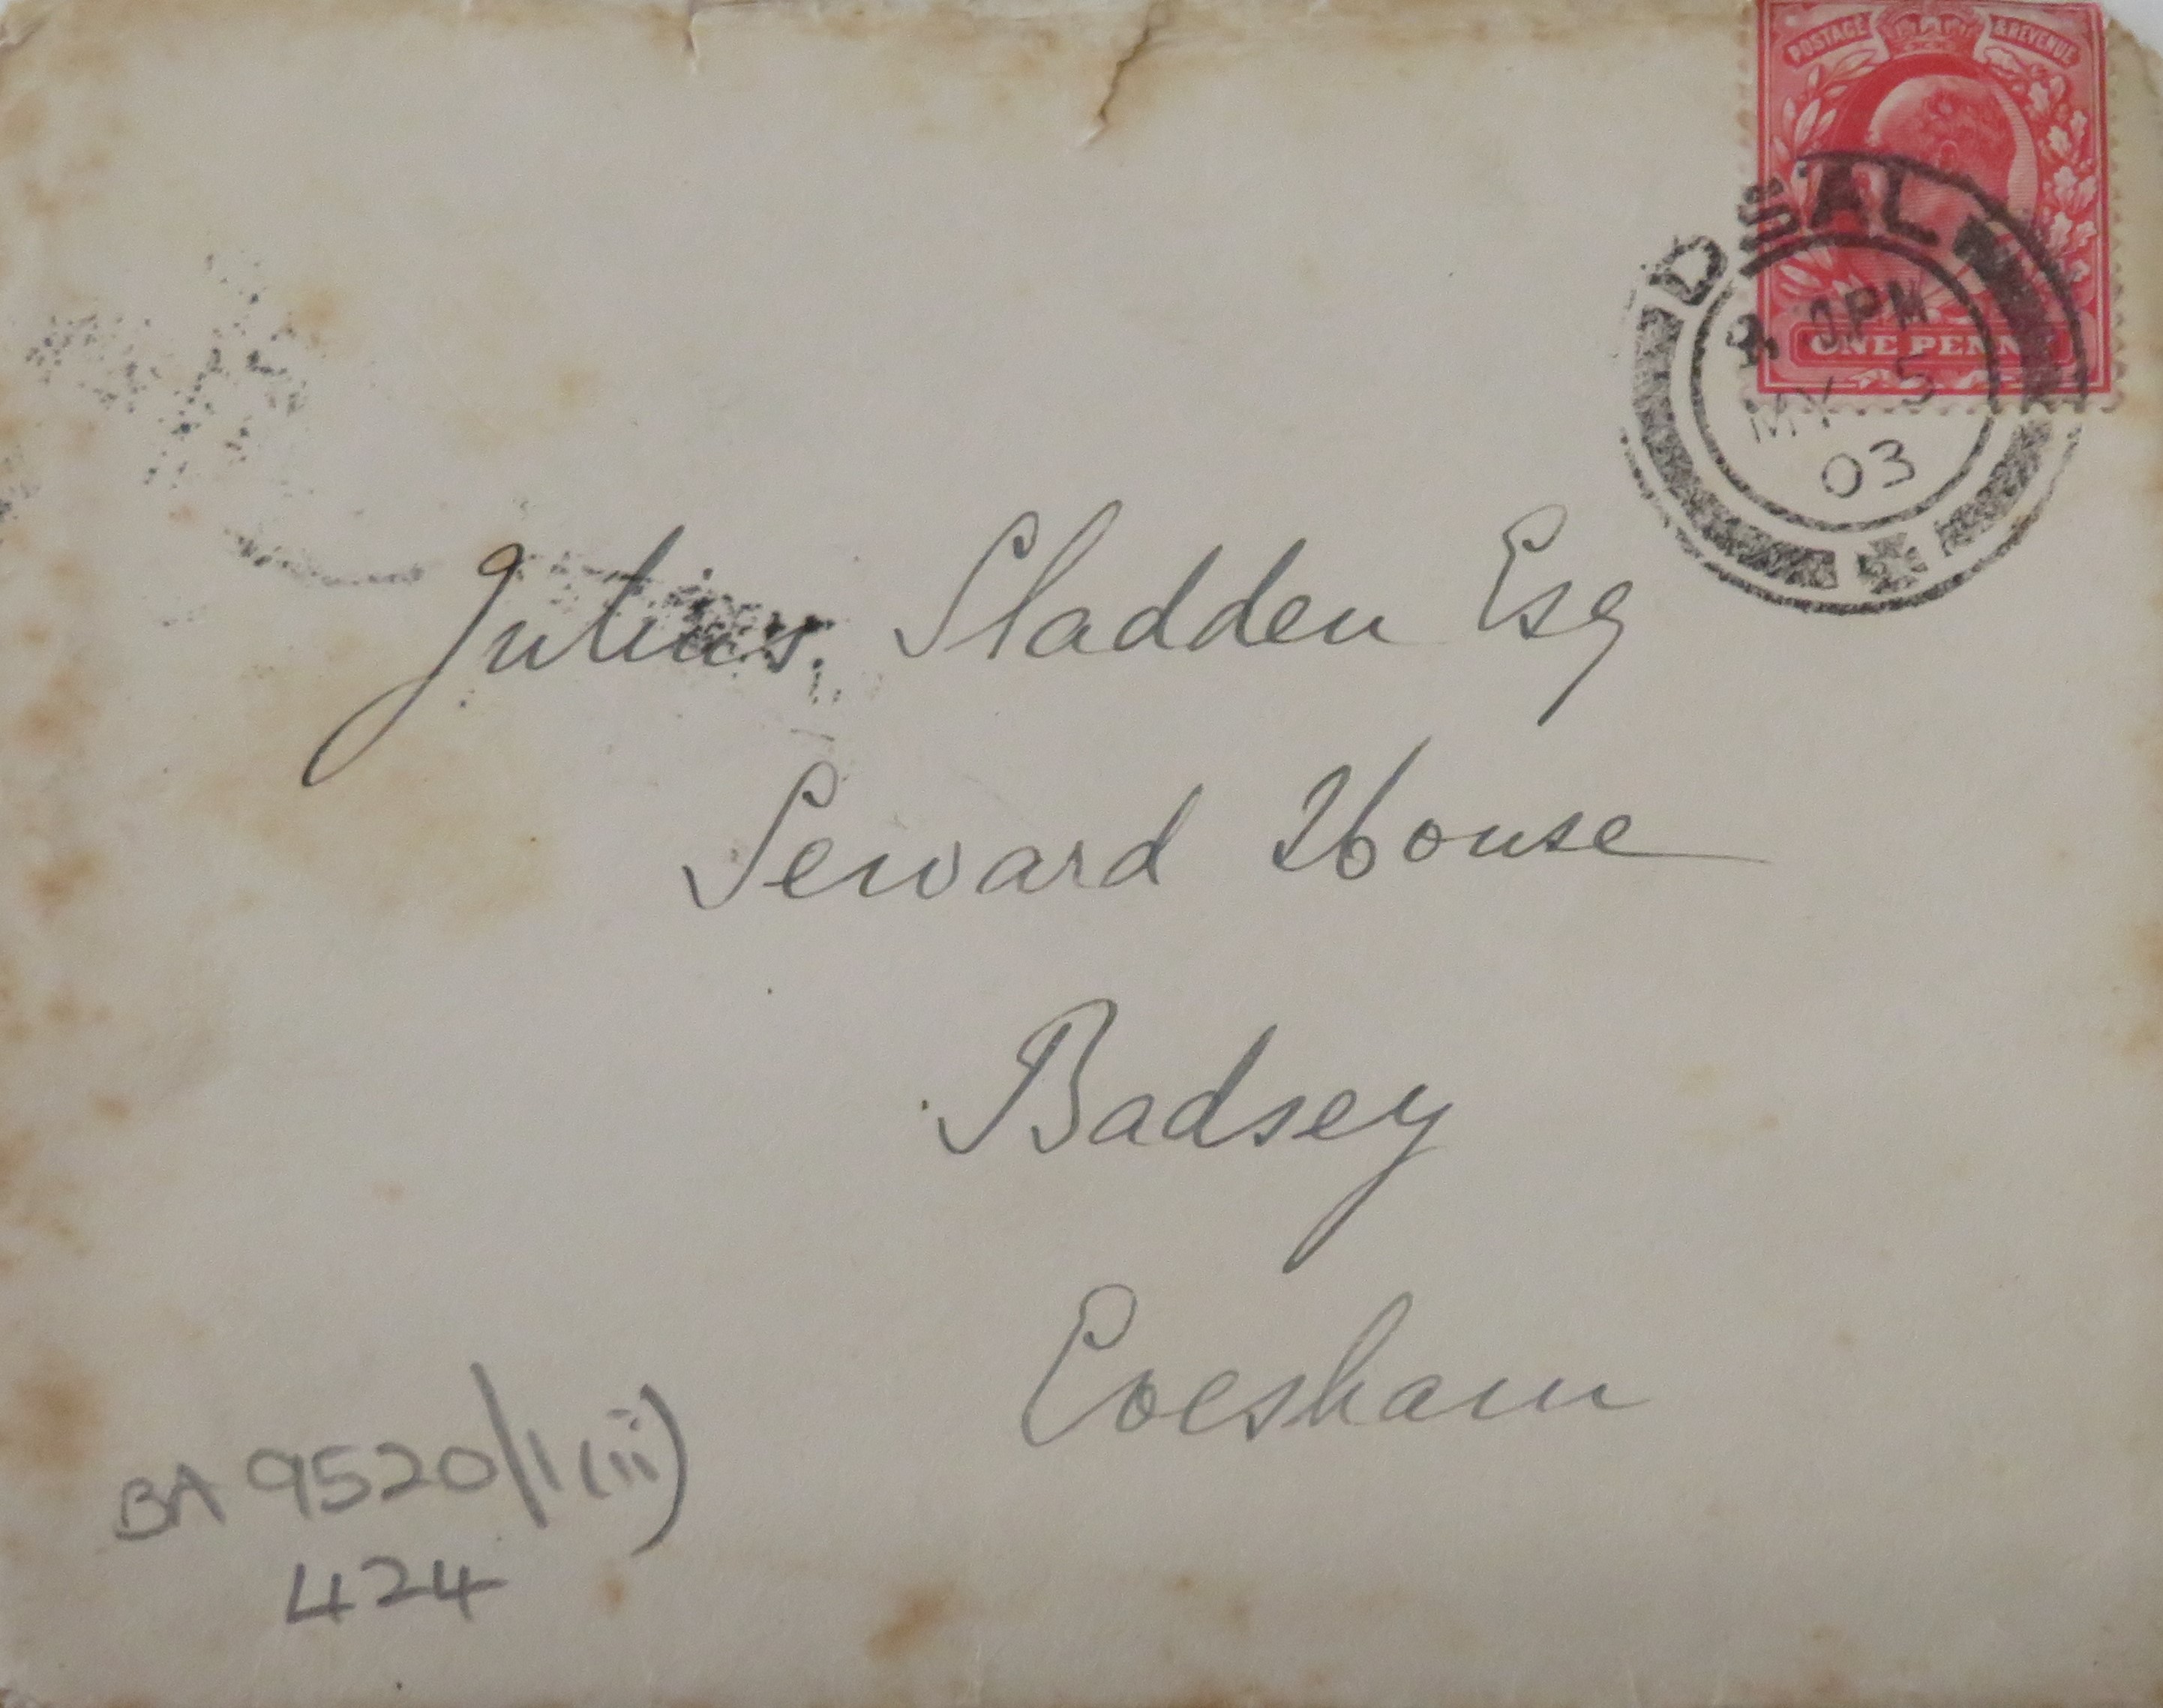 POSTAGE & REVENUE
DSAL
PM
ONE PENNY
MY 5
03
Julius Sladden Esq
Seward House
Badsey
Evesham
BA 9520/1(iii)
424